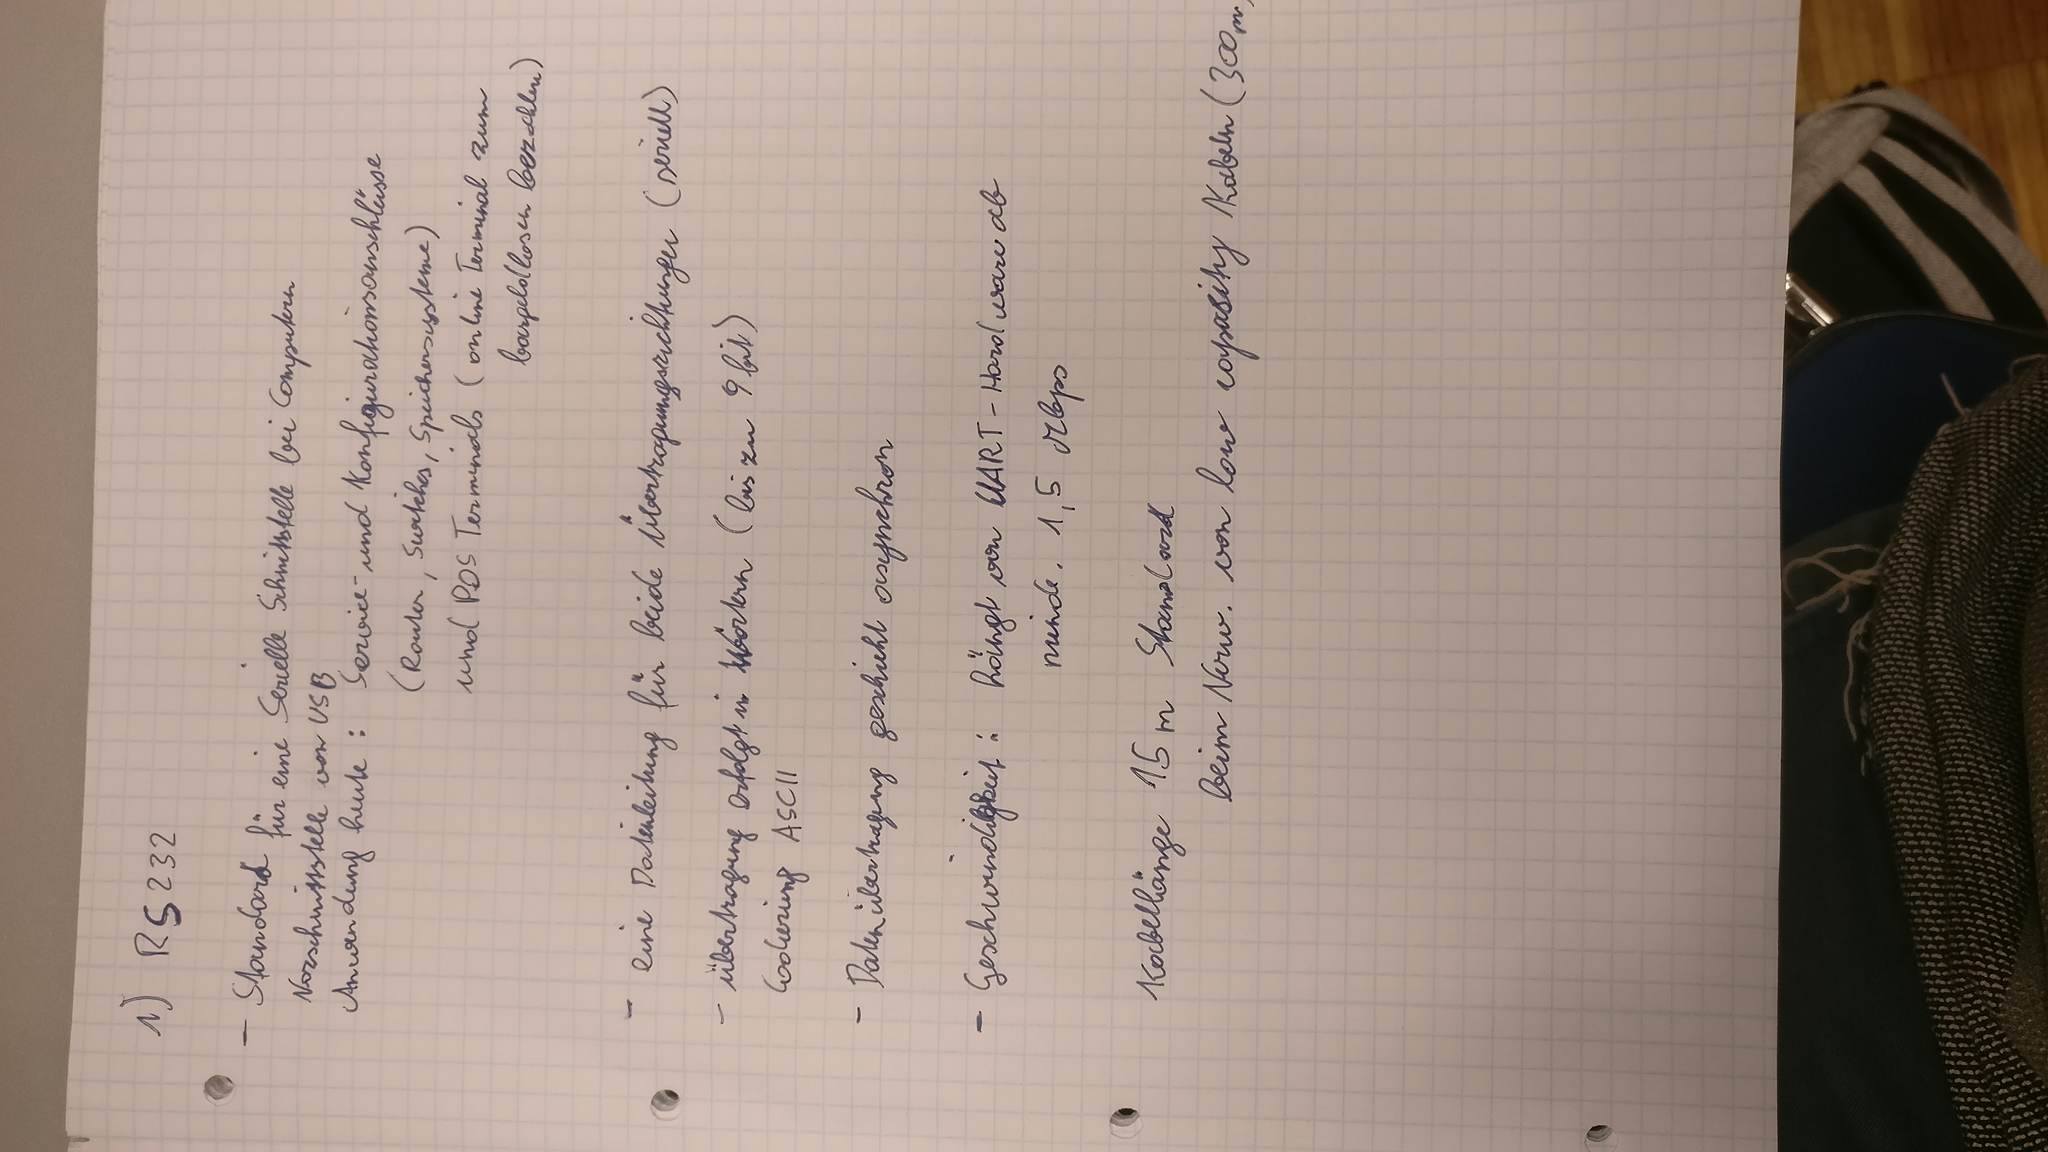 1) RS232
- Standard für eine Serielle Schnittstelle bei Computern
Vorschnittstelle von USB
Anwendung heute : Service- und Konfigurationsanschlüsse
(Router, Switches, Speichersysteme)
und POS Terminals (online Terminal zum
bargeldlosen bezahlen)
- eine Datenleitung für beide Übertragungsrichtungen (seriell)
- übertragung erfolgt in Wörtern (bis zu 9 bit)
Codierung ASCII
- Datenübertragung geschieht asynchron
- Geschwindigkeit : hängt von UART-Hardware ab
minde. 1,5 Mbps
Kabellänge 15 m Standard
beim Verw. von low capasity Kabeln (300m)